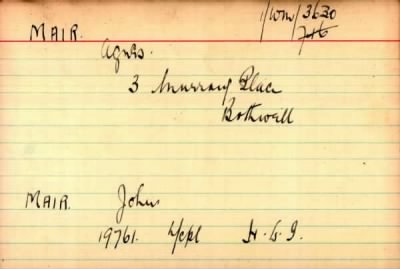 1/WM/3630
MAIR. 746
Agnes.
3 Murray Place
Bothwell
MAIR. John
19761. L/Cpl H.L.I.